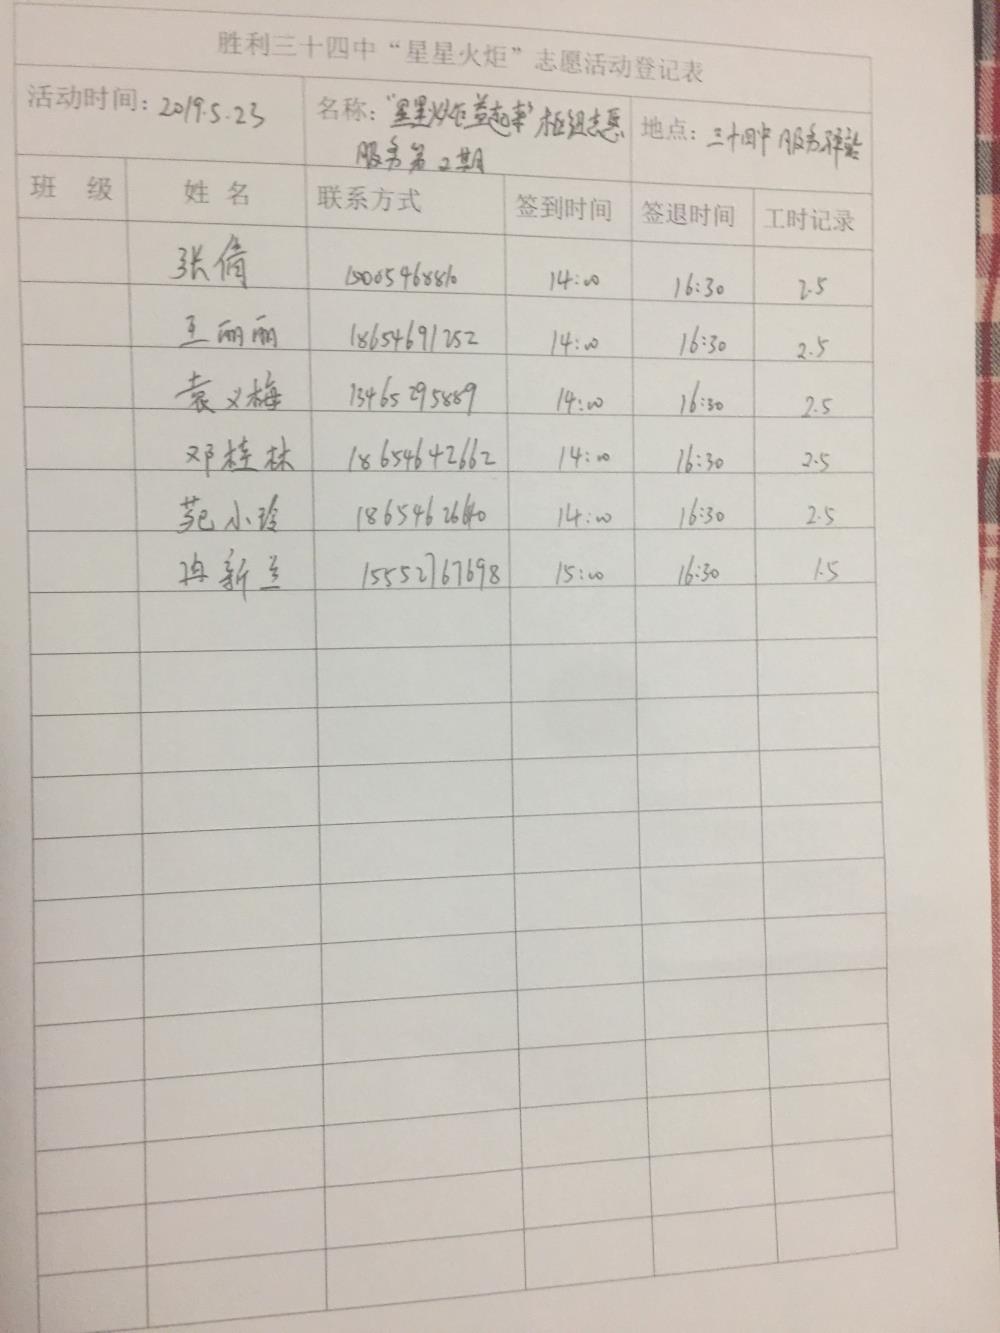 胜利三十四中“星星火炬”志愿活动登记表
活动时间：2019.5.23 名称：“星星火炬益起来”校组志愿 地点：三十四中服务驿站
服务第2期
班 级 姓 名 联系方式 签到时间 签退时间 工时记录
张倩 14:00 16:30 2.5
王丽丽 18654691252 14:00 16:30 2.5
袁义梅 13465295889 14:00 16:30 2.5
邓桂林 18654642662 14:00 16:30 2.5
范小玲 14:00 16:30 2.5
冉新兰 15552767698 15:00 16:30 1.5